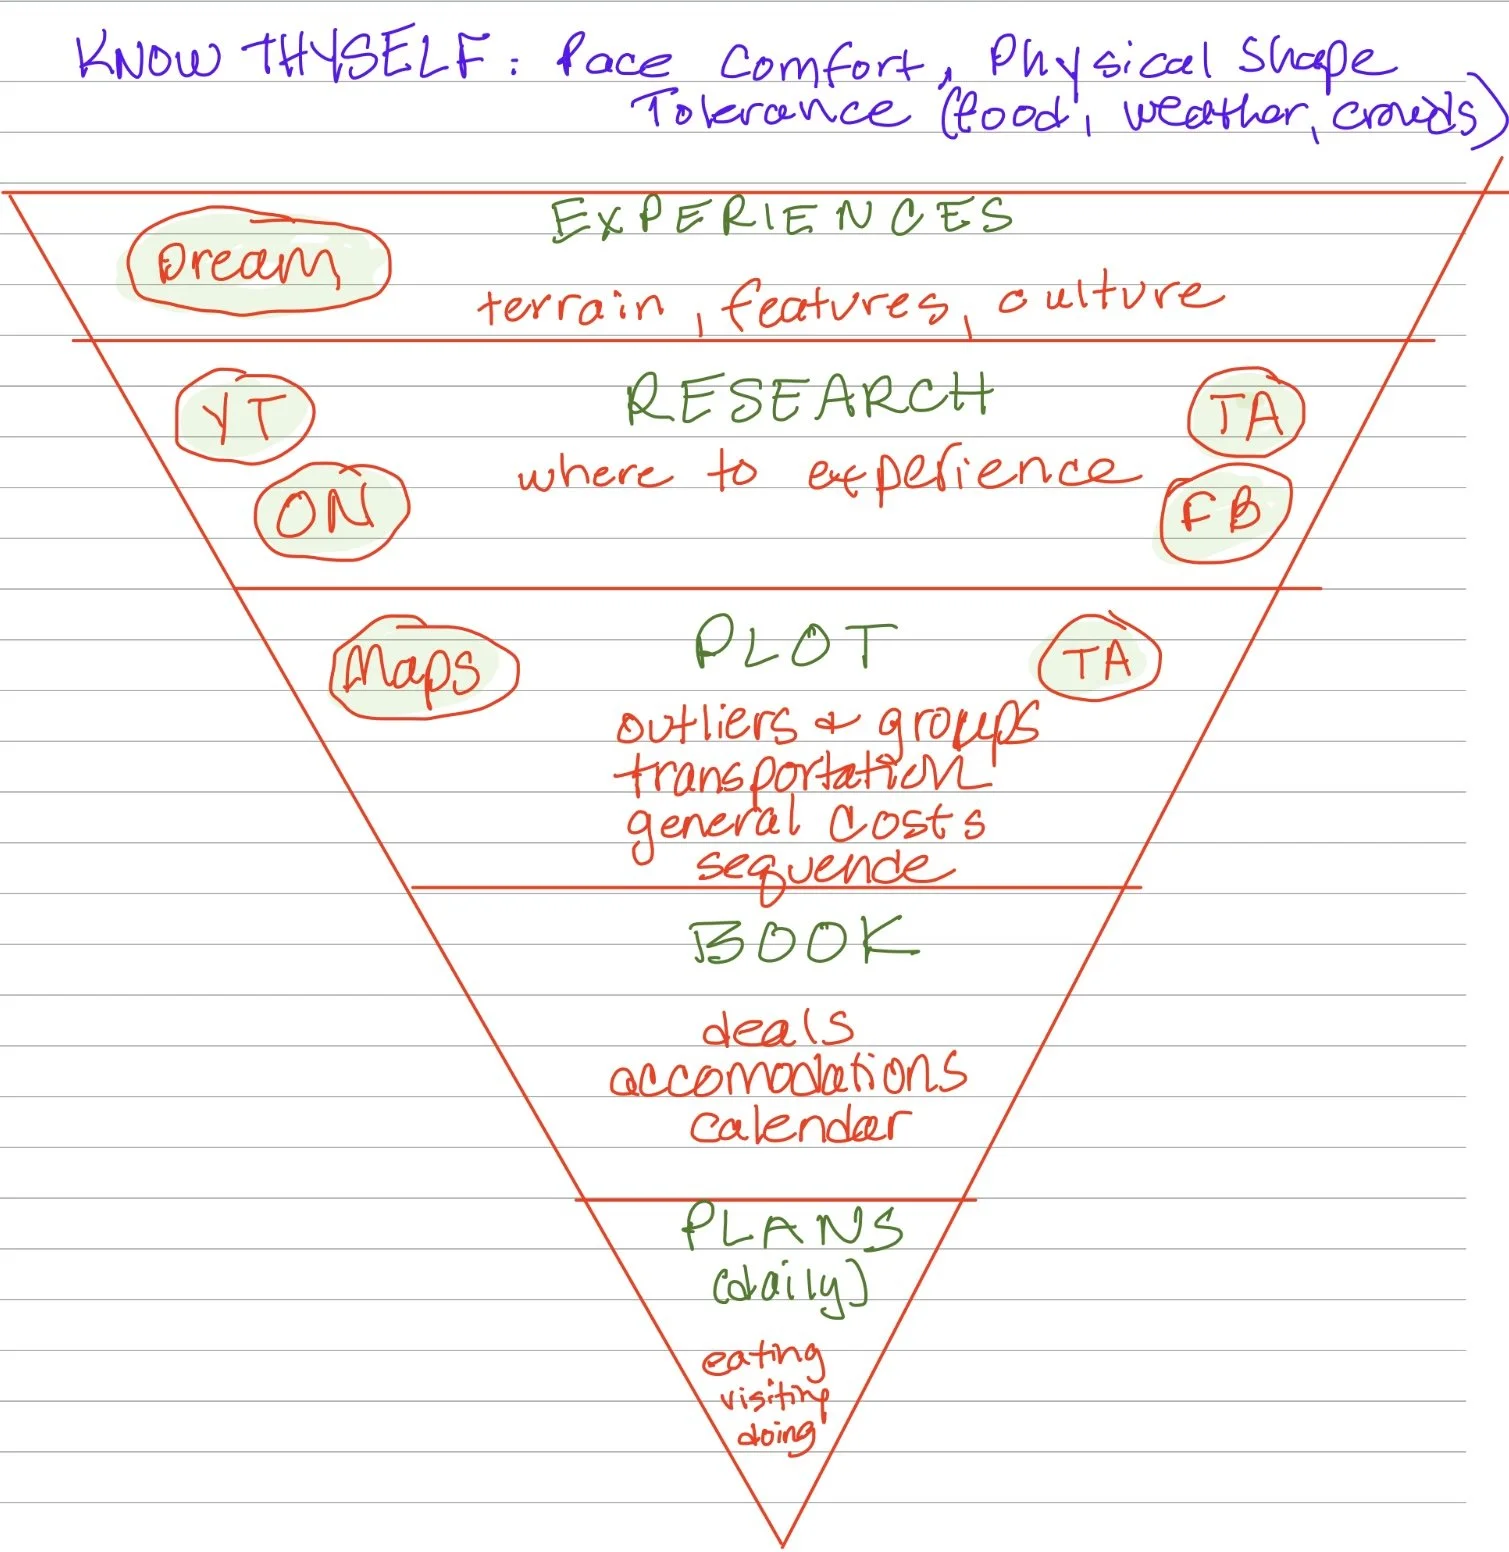 KNOW THYSELF: Pace Comfort, Physical Shape
Tolerance (food, weather, crowds)
EXPERIENCES
Dream
terrain, features, culture
YT
RESEARCH
TA
where to experience
ON
FB
Maps
PLOT
TA
outliers & groups
transportation
general costs
sequence
BOOK
deals
accomodations
calendar
PLANS
(daily)
eating
visiting
doing